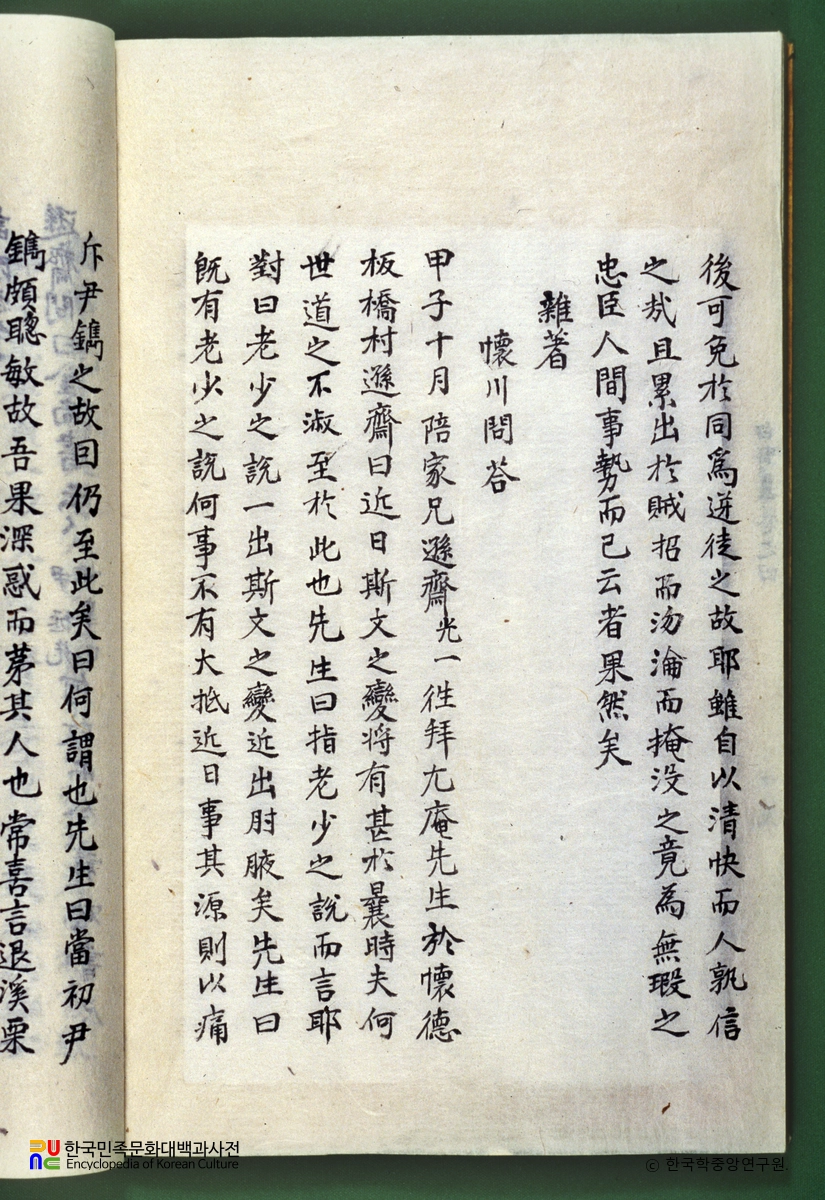 後可免於同爲逆徒之故耶雖自以清快而人孰信
之哉且累出於賊招而沕淪而掩没之竟為無瑕之
忠臣人間事勢而已云者果然矣
雜著
懷川問答
甲子十月陪家兄遜齋光一徃拜尤庵先生於懷德
板橋村遜齋曰近日斯文之變將有甚於曩時夫何
世道之不淑至於此也先生曰指老少之説而言耶
對曰老少之説一出斯文之變近出肘腋矣先生曰
既有老少之説何事不有大抵近日事其源則以痛
斥尹鑴之故因仍至此矣曰何謂也先生曰當初尹
鑴頗聰敏故吾果深惑而茅其人也常喜言退溪栗
한국민족문화대백과사전
Encyclopedia of Korean Culture
© 한국학중앙연구원